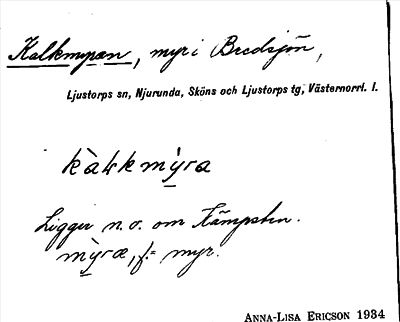 Kalkmyran, myr i Bredsjön,
Ljustorps sn, Njurunda, Sköns och Ljustorps tg, Västernorrl. l.
kàlkmỳra
Ligger n.o. om Kämpsten.
mỳra, f. = myr.
ANNA-LISA ERICSON 1934